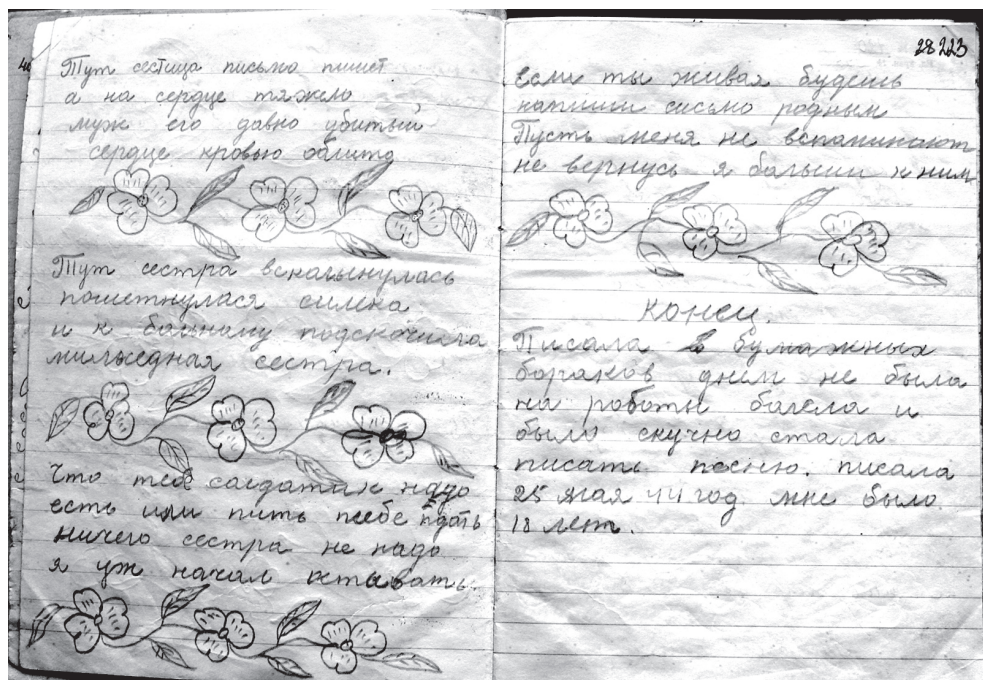 Тут сестица письмо пишет
а на сердце тяжело
муж его давно убитый
сердце кровью облито
Тут сестра всколынулась
пошетнулася слегка
и к больному подскочила
мильседная сестра.
Что тебе солдатик надо
есть или пить тебе подать
ничего сестра не надо
я уж начал остывать.
28 223
если ты живая будешь
напиши сисьмо родным
Пусть меня не вспаминают
не вернусь я большы к ним
конец.
Писала в бумажных
бараков днем не была
на работы болела и
было скучно стала
писать песню. писала
25 мая 44 год мне было
18 лет.